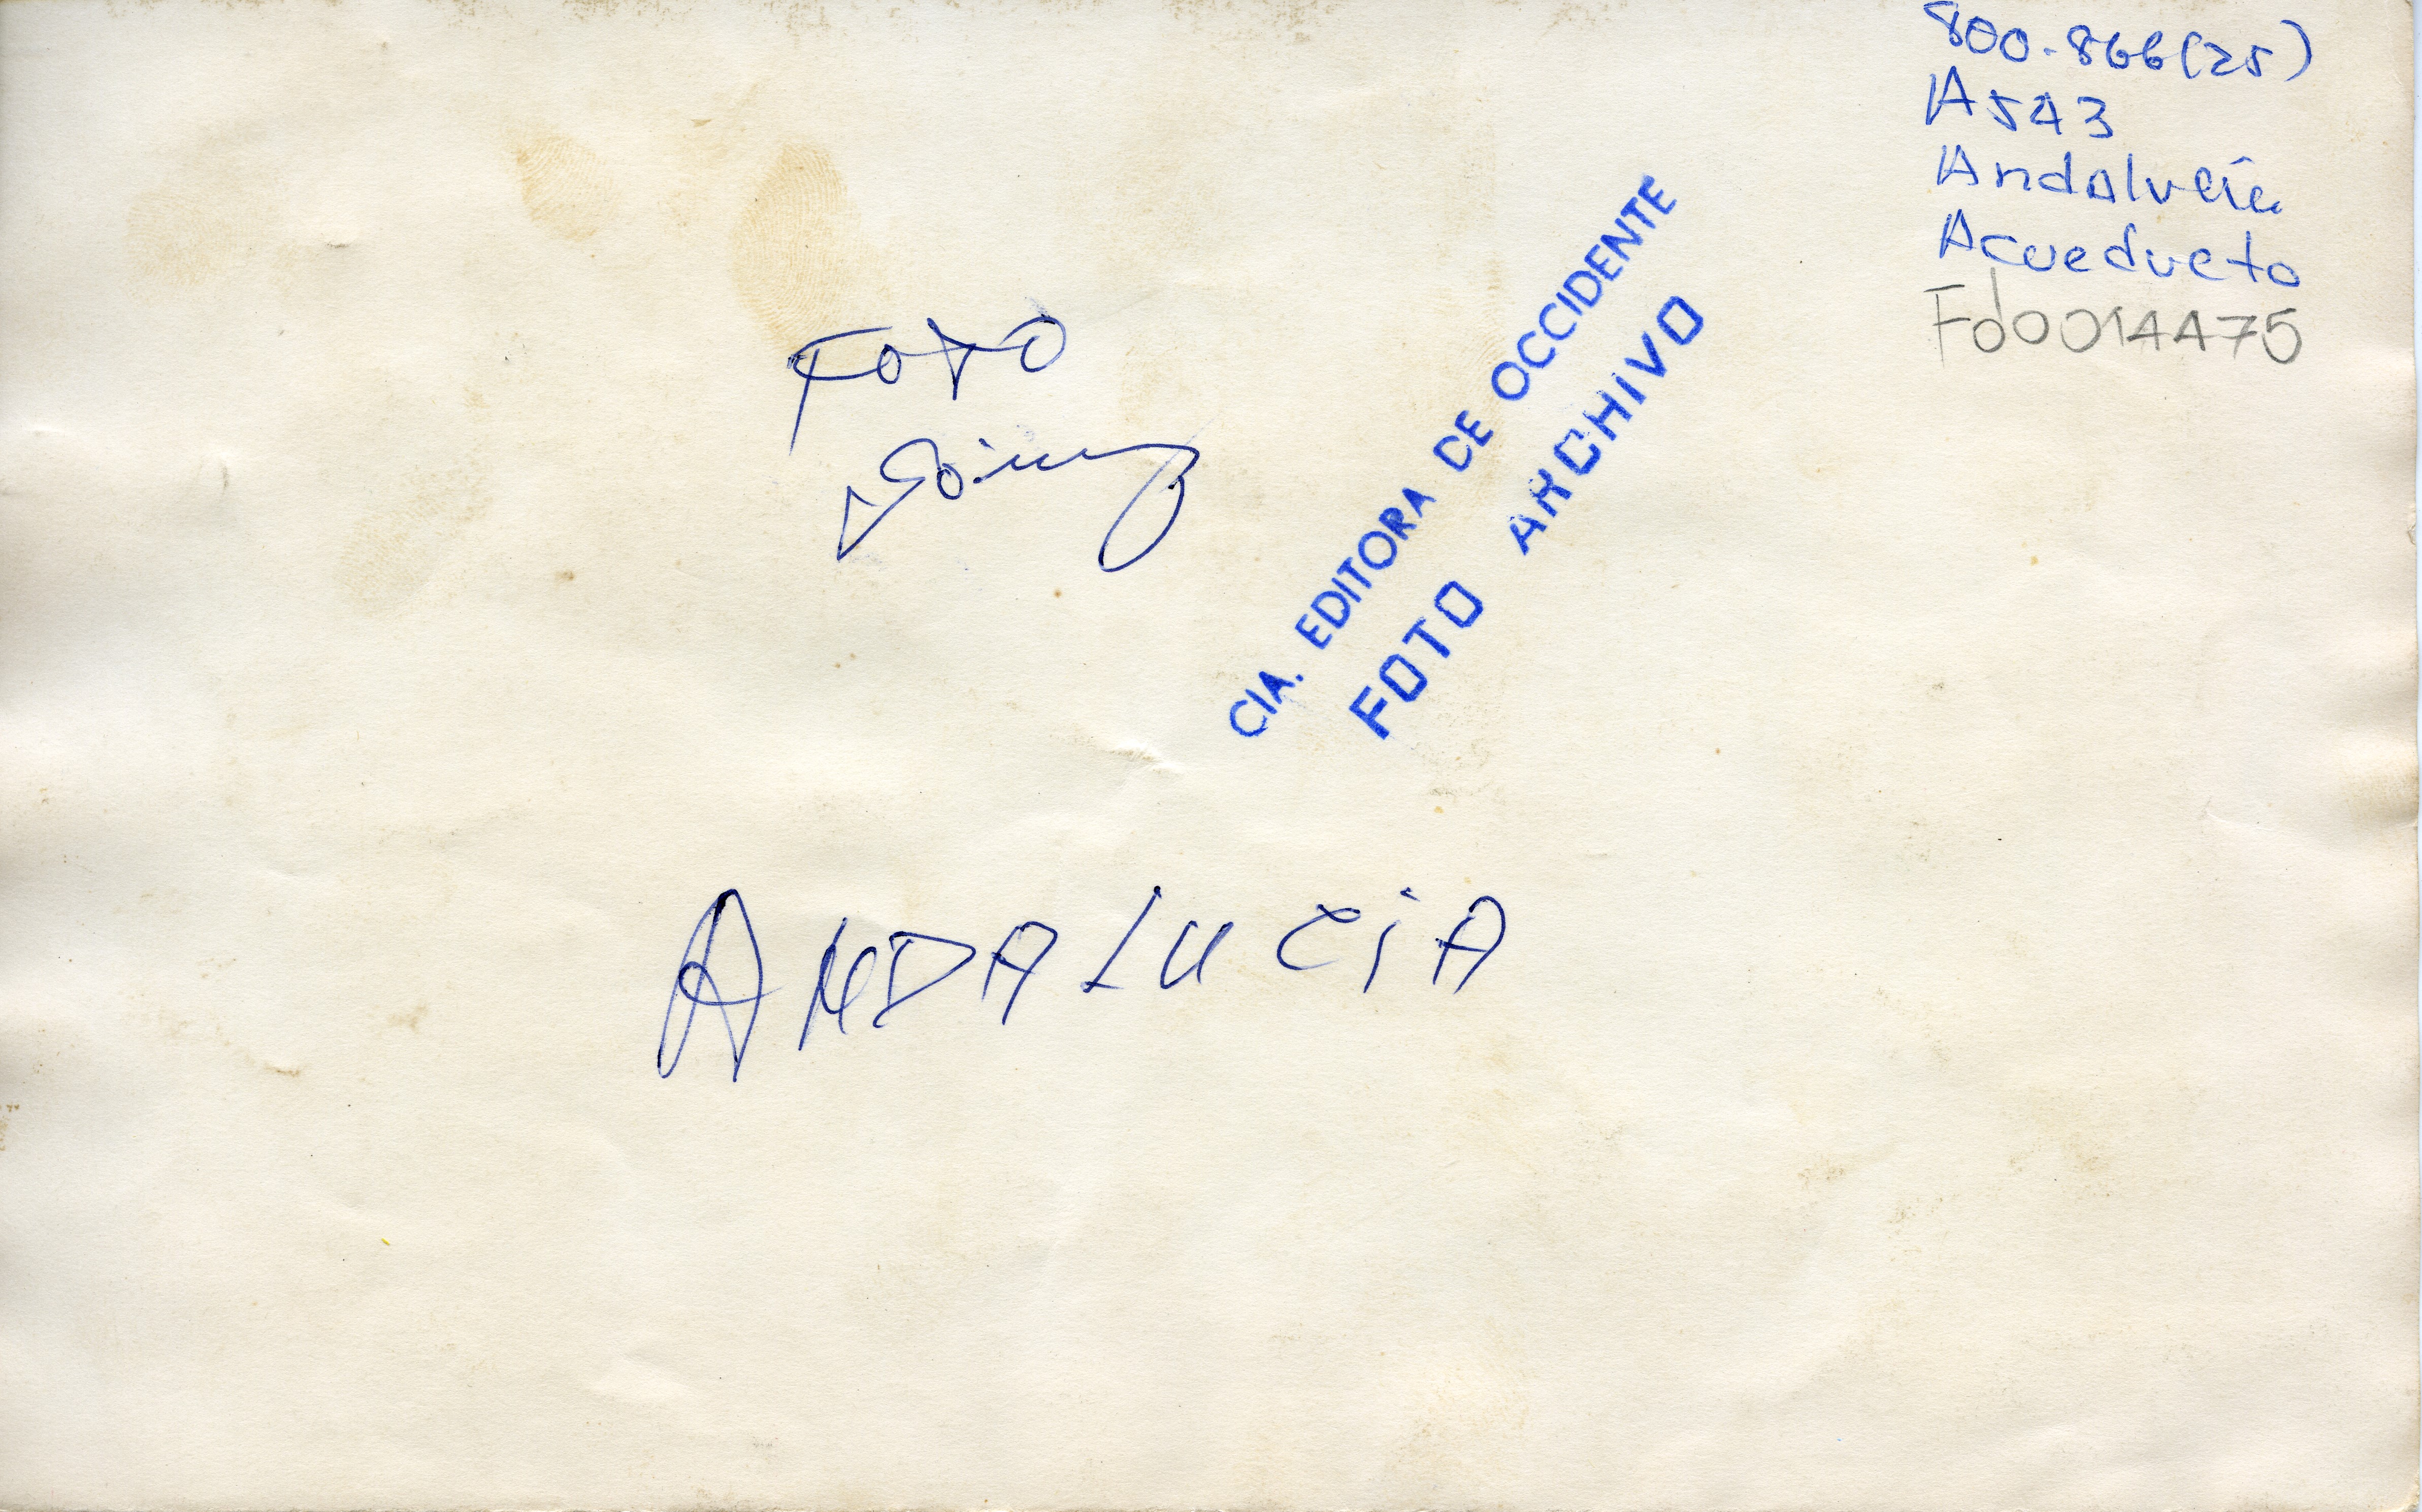 800-866(25)
A543
Andalucía
Acueducto
Fd0014475
Foto
CIA. EDITORA DE OCCIDENTE
FOTO ARCHIVO
ANDALUCiA